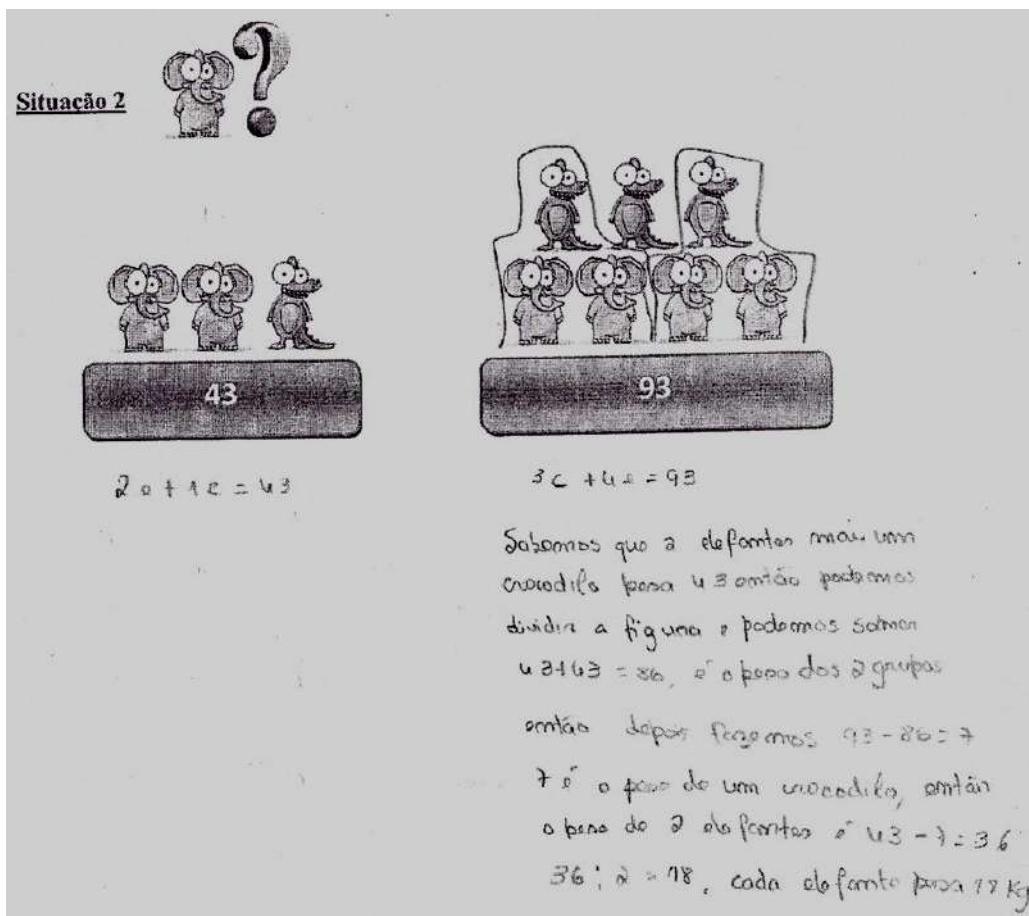 Situação 2
?
43
93
2e+1c=43
3c+4e=93
Sabemos que 2 elefantes mais um
crocodilo pesa 43 então podemos
dividir a figura e podemos somar
43+43=86, é o peso dos 2 grupos
então depois fazemos 93-86=7
7 é o peso de um crocodilo, então
o peso de 2 elefantes é 43-7=36
36:2=18, cada elefante pesa 18 Kg